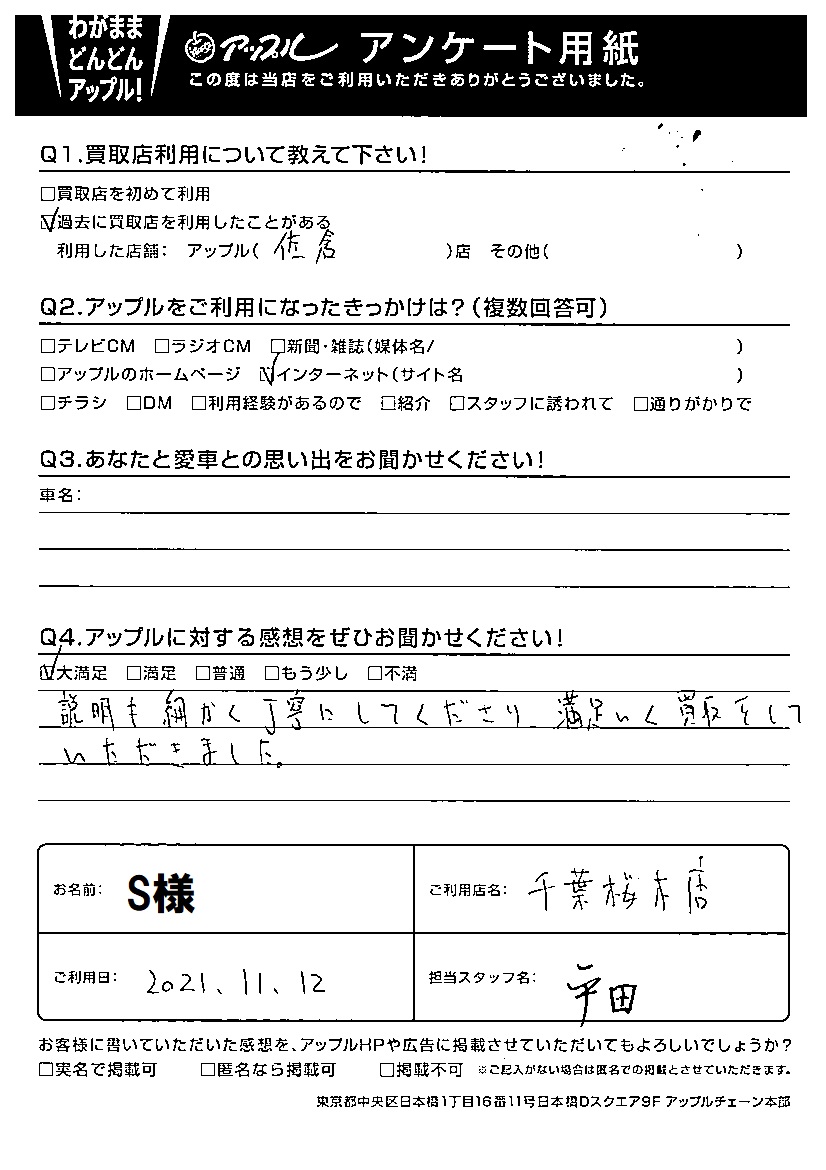 わがまま
どんどん
アップル!
アップル アンケート用紙
この度は当店をご利用いただきありがとうございました。
Q1.買取店利用について教えて下さい!
□買取店を初めて利用
☑過去に買取店を利用したことがある
利用した店舗: アップル( 佐倉 )店 その他( )
Q2.アップルをご利用になったきっかけは?(複数回答可)
□テレビCM □ラジオCM □新聞・雑誌(媒体名/ )
□アップルのホームページ ☑インターネット(サイト名 )
□チラシ □DM □利用経験があるので □紹介 □スタッフに誘われて □通りがかりで
Q3.あなたと愛車との思い出をお聞かせください!
車名:
Q4.アップルに対する感想をぜひお聞かせください!
☑大満足 □満足 □普通 □もう少し □不満
説明も細かく丁寧にしてくださり 満足いく買取をして
いただきました。
お名前: S様
ご利用店名: 千葉桜木店
ご利用日: 2021.11.12
担当スタッフ名: 平田
お客様に書いていただいた感想を、アップルHPや広告に掲載させていただいてもよろしいでしょうか?
□実名で掲載可 □匿名なら掲載可 □掲載不可 ※ご記入がない場合は匿名での掲載とさせていただきます。
東京都中央区日本橋1丁目16番11号日本橋Dスクエア9F アップルチェーン本部